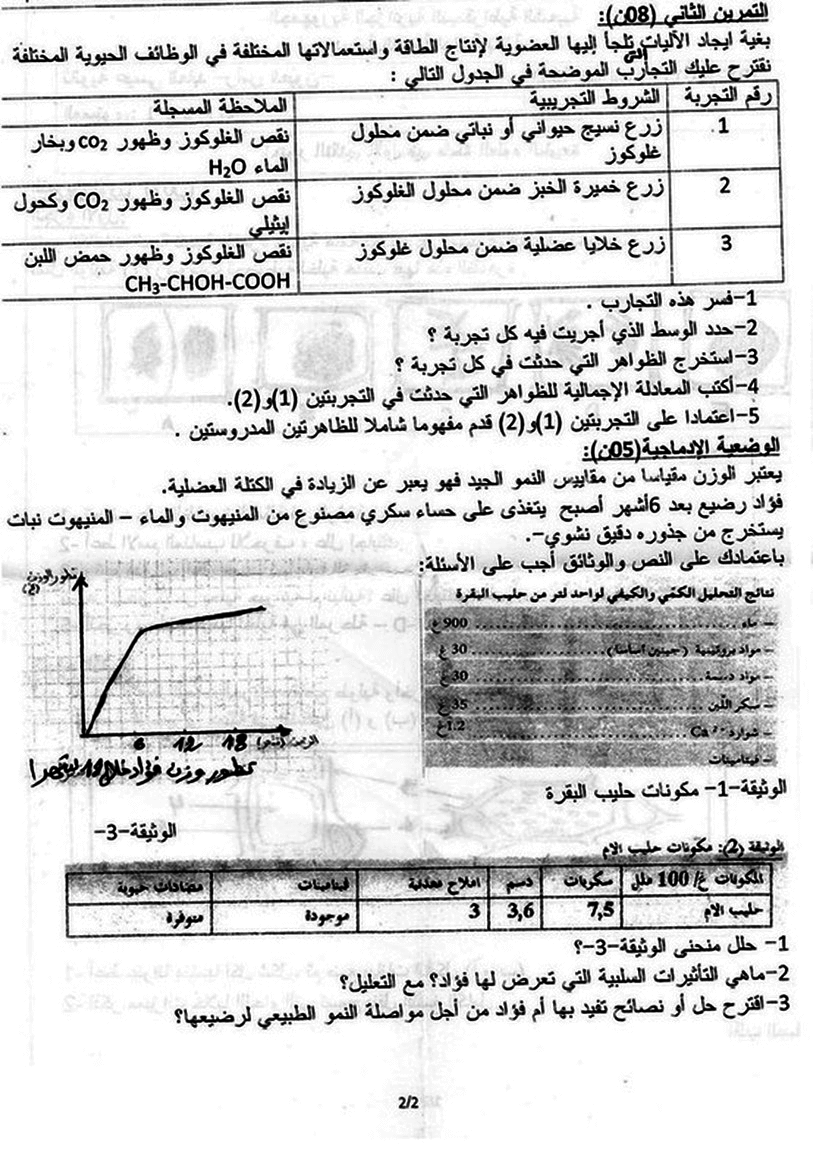 التمرين الثاني (08ن):
بغية ايجاد الآليات التي تلجأ إليها العضوية لإنتاج الطاقة واستعمالاتها المختلفة في الوظائف الحيوية المختلفة
نقترح عليك التجارب الموضحة في الجدول التالي :
رقم التجربة الشروط التجريبية الملاحظة المسجلة
1. زرع نسيج حيواني أو نباتي ضمن محلول غلوكوز نقص الغلوكوز وظهور co₂ وبخار الماء H₂O
2 زرع خميرة الخبز ضمن محلول الغلوكوز نقص الغلوكوز وظهور CO₂ وكحول إيثيلي
3 زرع خلايا عضلية ضمن محلول غلوكوز نقص الغلوكوز وظهور حمض اللبن CH₃-CHOH-COOH
1-فسر هذه التجارب .
2-حدد الوسط الذي أجريت فيه كل تجربة ؟
3-استخرج الظواهر التي حدثت في كل تجربة ؟
4-أكتب المعادلة الإجمالية للظواهر التي حدثت في التجربتين (1)و(2).
5-اعتمادا على التجربتين (1)و(2) قدم مفهوما شاملا للظاهرتين المدروستين .
الوضعية الإدماجية(05ن):
يعتبر الوزن مقياسا من مقاييس النمو الجيد فهو يعبر عن الزيادة في الكتلة العضلية.
فؤاد رضيع بعد 6أشهر أصبح يتغذى على حساء سكري مصنوع من المنيهوت والماء – المنيهوت نبات
يستخرج من جذوره دقيق نشوي-.
باعتمادك على النص والوثائق أجب على الأسئلة:
نتائج التحليل الكمّي والكيفي لواحد لتر من حليب البقرة
- ماء ........ 900 غ
- مواد بروتينية (جبنين أساسا) ........ 30 غ
- مواد دسمة ........ 30 غ
- سكر اللّبن ........ 35 غ
- شوارد Ca²⁺ ........ 1.2غ
- فيتامينات
تطور الوزن (غ)
6 12 18 الزمن (شهر)
تطور وزن فؤاد خلال
الوثيقة-1- مكونات حليب البقرة
الوثيقة-3-
الوثيقة (2): مكونات حليب الام
المكونات غ/ 100 ملل سكريات دسم املاح معدنية فيتامينات مضادات حيوية
حليب الام 7,5 3,6 3 موجودة متوفرة
1- حلل منحنى الوثيقة-3-؟
2-ماهي التأثيرات السلبية التي تعرض لها فؤاد؟ مع التعليل؟
3-اقترح حل أو نصائح تفيد بها أم فؤاد من أجل مواصلة النمو الطبيعي لرضيعها؟
2/2